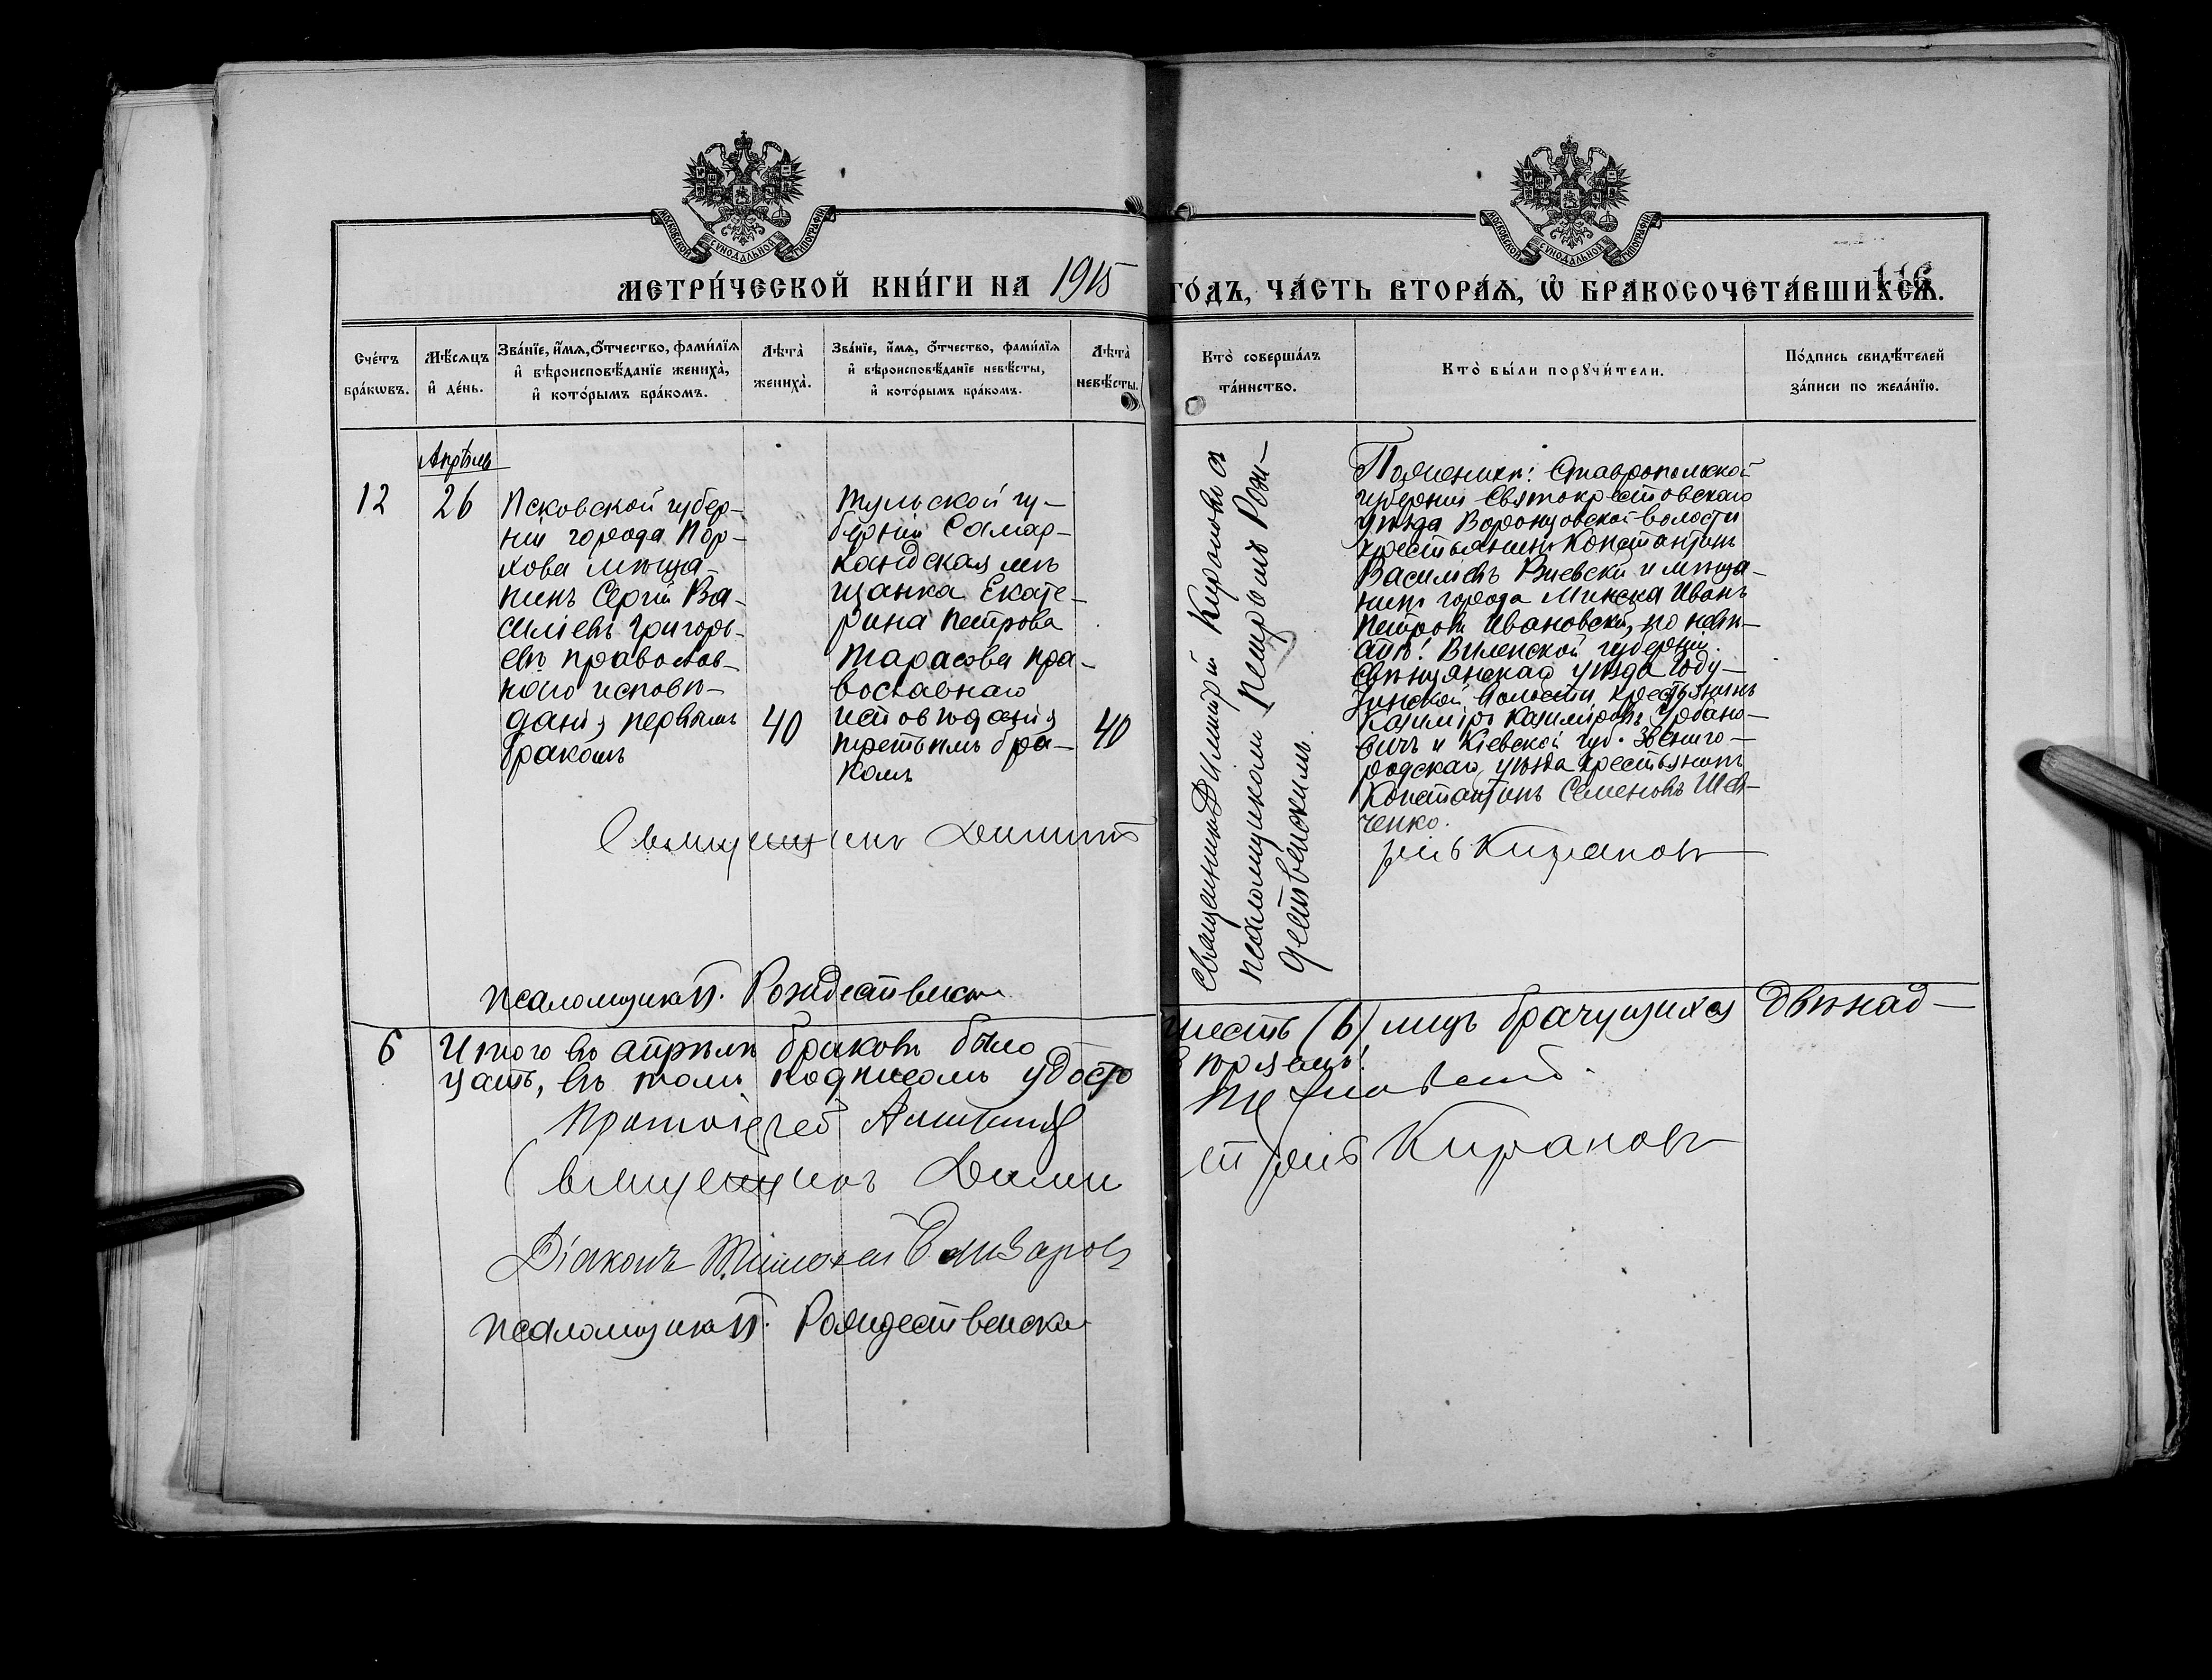 МОСКОВСКОЙ СѴНОДАЛЬНОЙ ТИПОГРАФІИ
МОСКОВСКОЙ СѴНОДАЛЬНОЙ ТИПОГРАФІИ
МЕТРИ́ЧЕСКОЙ КНИ́ГИ НА 1915 ГО́ДЪ, ЧА́СТЬ ВТОРА́Ѧ, Ѡ҆ БРАКОСОЧЕТА́ВШИХСѦ.
116
Сче́тъ бра́кѡвъ.
Мѣ́сѧцъ и҆ де́нь.
Зва́нїе, и҆́мѧ, ѻ҆́тчество, фами́лїѧ и҆ вѣроисповѣ́данїе жениха̀, и҆ кото́рымъ бра́комъ.
Лѣта̀ жениха̀.
Зва́нїе, и҆́мѧ, ѻ҆́тчество, фами́лїѧ и҆ вѣроисповѣ́данїе невѣ́сты, и҆ кото́рымъ бра́комъ.
Лѣта̀ невѣ́сты.
Кто̀ соверша́лъ та́инство.
Кто̀ бы́ли порꙋчи́тели.
По́дпись свидѣ́телей за́писи по жела́нїю.
Апрѣль
12
26
Псковской губер-
ніи города Пор-
хова мѣща-
нинъ Сергій Ва-
силіевъ Григорь-
евъ православ-
наго исповѣ-
данія, первымъ
бракомъ
40
Тульской гу-
берніи Самар-
кандская мѣ
щанка Екате-
рина Петрова
Тарасова пра-
вославнаго
исповѣданія
третьимъ бра-
комъ
40
Священникъ Димитрій Кирановъ съ
псаломщикомъ Петромъ Рож-
дественскимъ.
По женихѣ: Ставропольской
губерніи Святокрестовскаго
уѣзда Воронцовской волости
крестьянинъ Константинъ
Василіевъ Вневскій и мѣща-
нинъ города Минска Иванъ
Петровъ Ивановскій, по невѣ-
стѣ: Виленской губерніи
Свенцянскаго уѣзда Году-
зинской волости крестьянинъ
Казиміръ Казиміровъ Урбано-
вичъ и Кіевской губ. Звениго-
родскаго уѣзда крестьянинъ
Константинъ Семеновъ Шев-
ченко.
Священникъ Димитрій Кирановъ
псаломщикъ П. Рождественскій
6
Итого въ апрѣлѣ браковъ было шесть (6) лицъ брачущихся двѣнад-
цать, въ томъ подписомъ удосто вѣряемъ:
Протоіерей
Священникъ Димитрій Кирановъ
Діаконъ Тимофей Елизаровъ
псаломщикъ П. Рождественскій